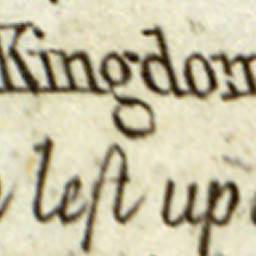 Kingdom
left up